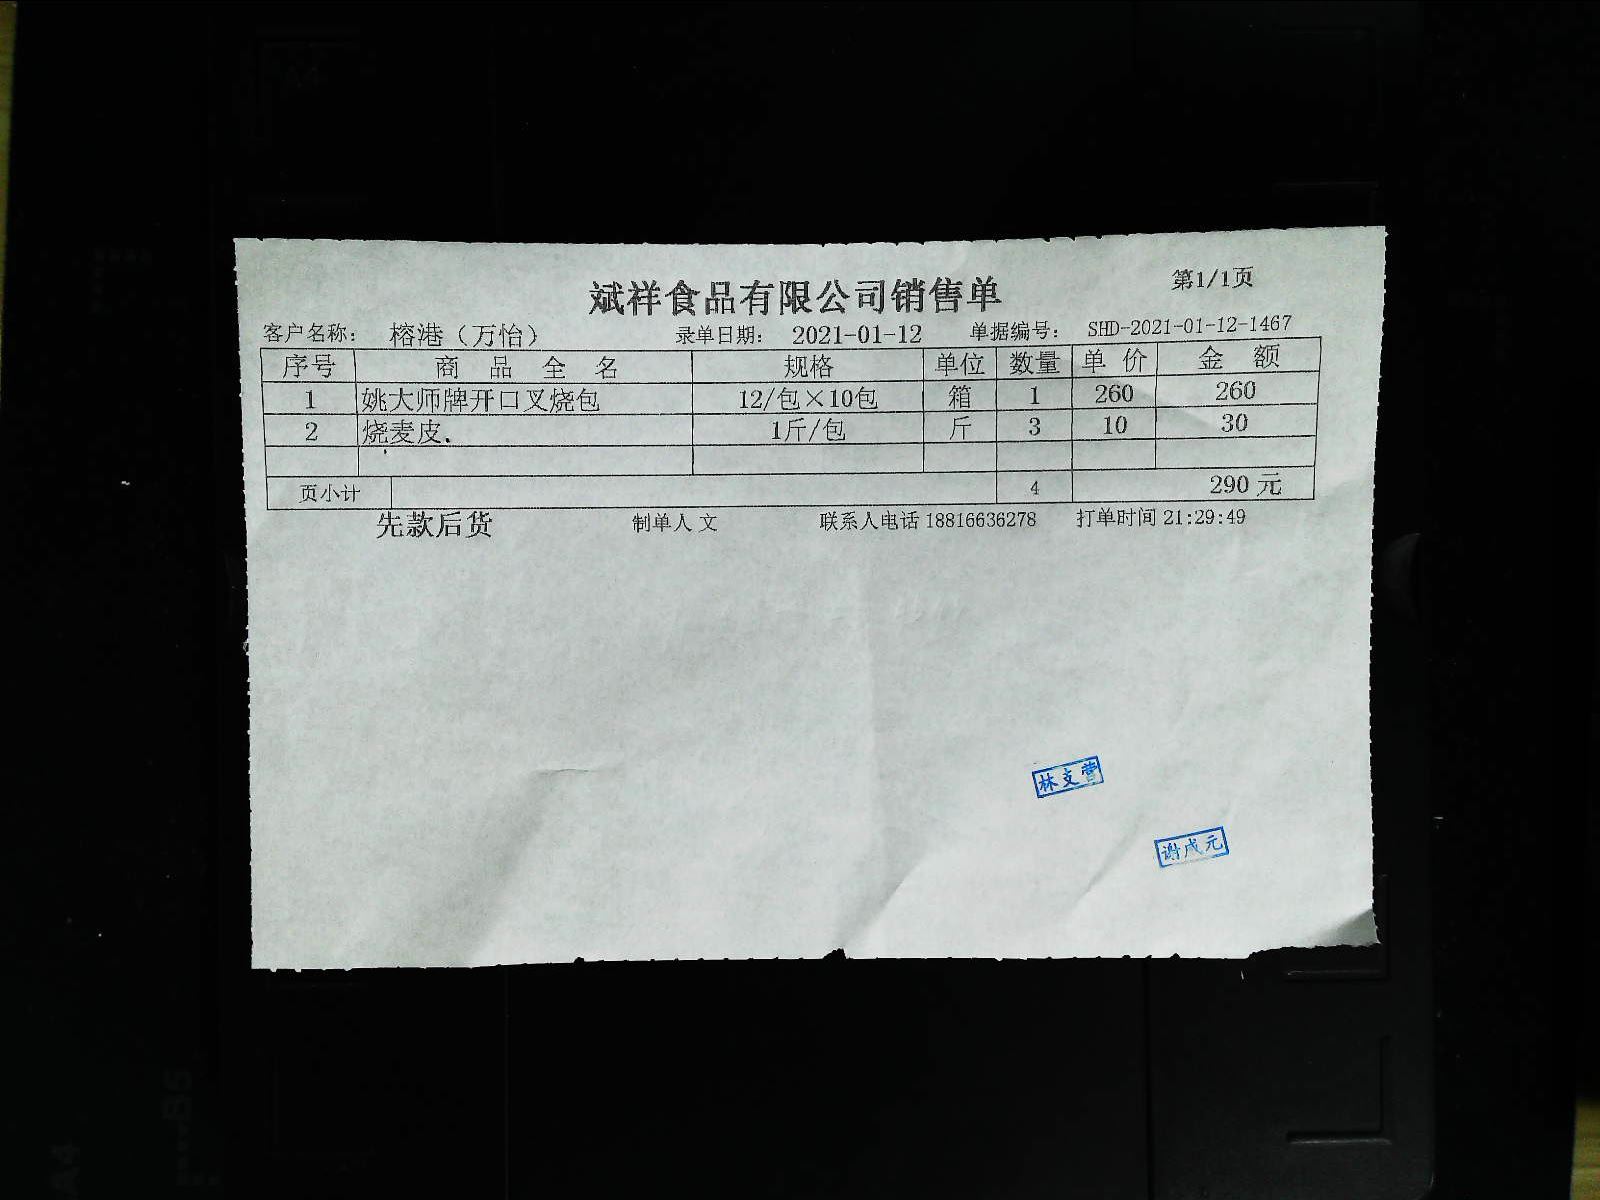 第1/1页
斌祥食品有限公司销售单
客户名称： 榕港（万怡） 录单日期： 2021-01-12 单据编号： SHD-2021-01-12-1467
序号 商品全名 规格 单位 数量 单价 金额
1 姚大师牌开口叉烧包 12/包×10包 箱 1 260 260
2 烧麦皮. 1斤/包 斤 3 10 30
页小计 4 290元
先款后货 制单人 文 联系人电话 18816636278 打单时间 21:29:49
林支营
谢成元
A4
B5